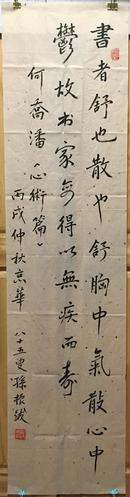 書者舒也散也舒胸中氣散心中
鬱故书家每得以無疾而壽
何喬潘心術篇
丙戌仲秋京華
八十五叟孫振紱